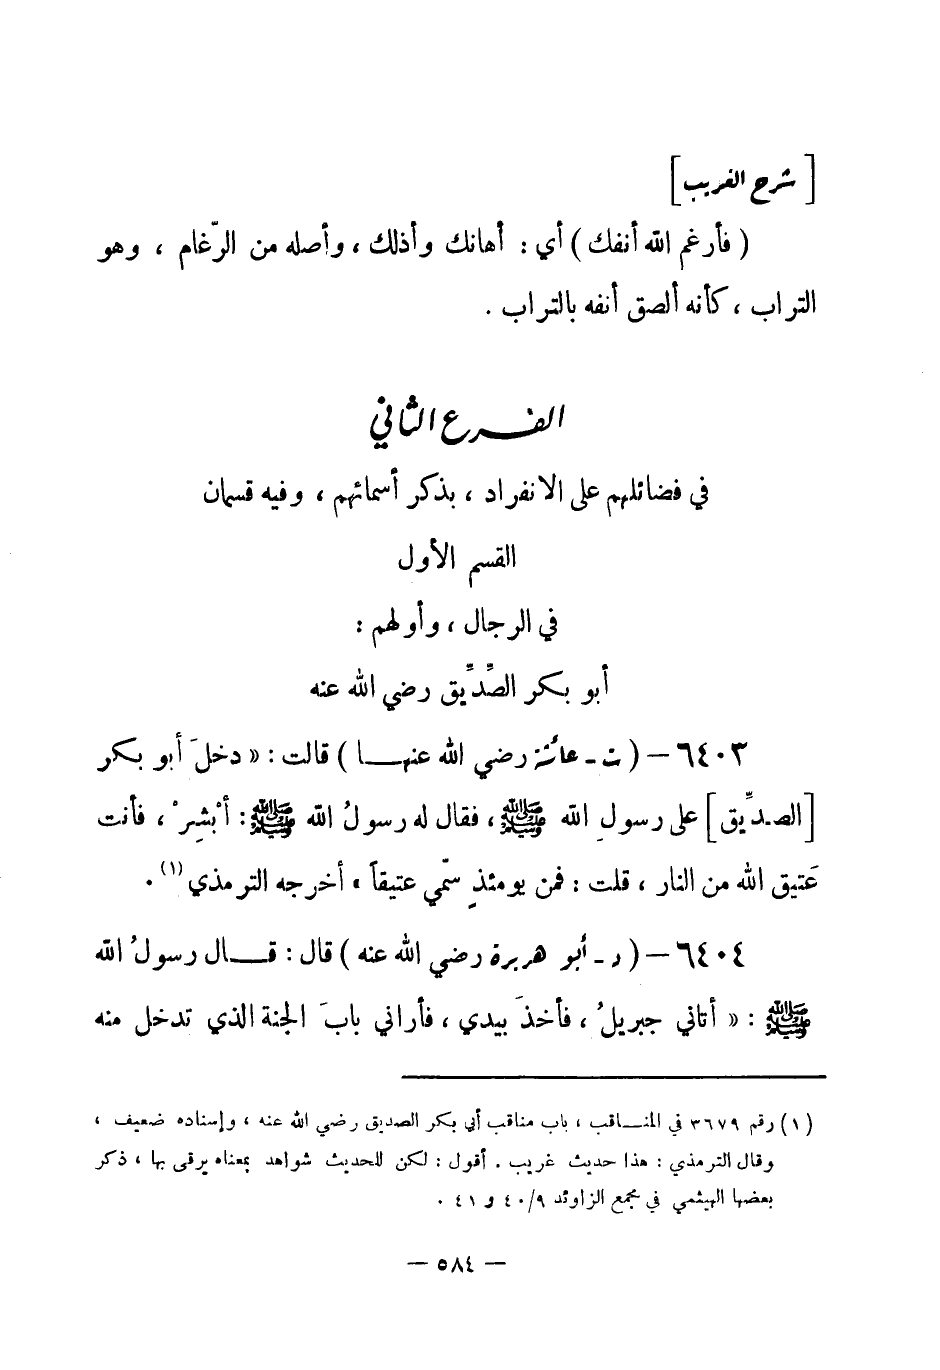 [ شرح الغريب ]
( فأرغم الله أنفك ) أي : أهانك وأذلك ، وأصله من الرّغام ، وهو
التراب ، كأنه ألصق أنفه بالتراب .
الفرع الثاني
في فضائلهم على الانفراد ، بذكر أسمائهم ، وفيه قسمان
القسم الأول
في الرجال ، وأولهم :
أبو بكر الصِّدِّيق رضي الله عنه
٦٤٠٣ — ( ت - عائشة رضي الله عنهـا ) قالت : « دخلَ أبو بكر
[ الصـدِّيق ] على رسولِ الله ﷺ ، فقال له رسولُ الله ﷺ : أبْشِرْ ، فأنت
عَتيق الله من النار ، قلت : فمن يومئذٍ سمّي عتيقاً » أخرجه الترمذي (١) .
٦٤٠٤ — ( د - أبو هريرة رضي الله عنه ) قال : قـال رسولُ الله
ﷺ : « أتاني جبريلُ ، فأخذَ بيدي ، فأراني بابَ الجنة الذي تدخل منه
(١) رقم ٣٦٧٩ في المنـاقب ، باب مناقب أبي بكر الصديق رضي الله عنه ، وإسناده ضعيف ،
وقال الترمذي : هذا حديث غريب . أقول : لكن للحديث شواهد بمعناه يرقى بها ، ذكر
بعضها الهيثمي في مجمع الزاوئد ٤٠/٩ و ٤١ .
— ٥٨٤ —